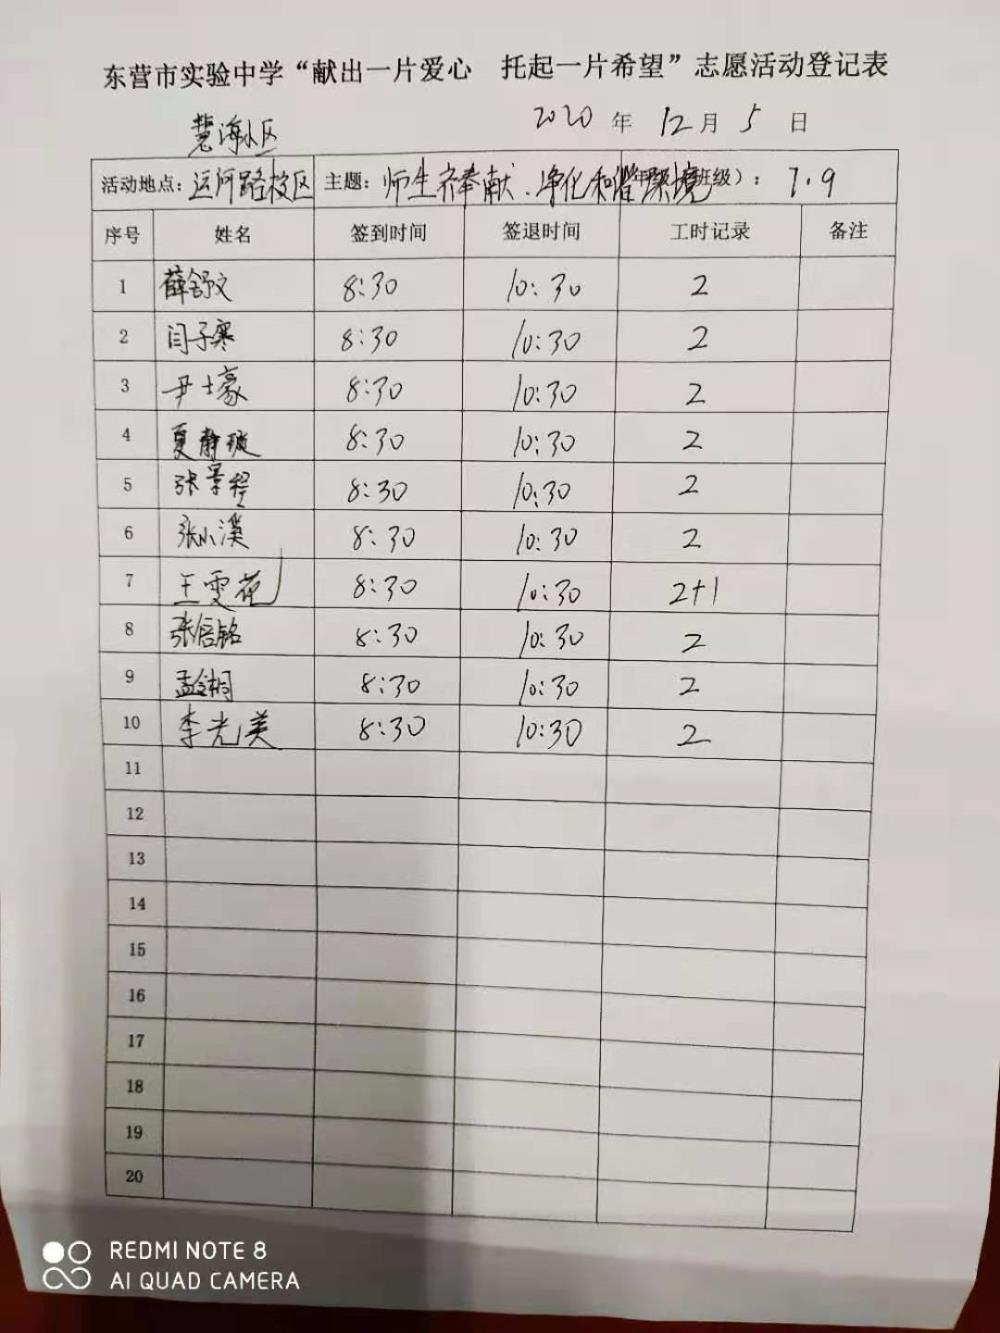 东营市实验中学“献出一片爱心 托起一片希望”志愿活动登记表
慧海小区 2020 年 12 月 5 日
活动地点：运河路校区 主题：师生齐奉献、净化和谐环境 班级）： 7.9
序号 姓名 签到时间 签退时间 工时记录 备注
1 薛舒文 8:30 10:30 2
2 闫子寒 8:30 10:30 2
3 尹士豪 8:30 10:30 2
4 夏静璇 8:30 10:30 2
5 张景程 8:30 10:30 2
6 张小溪 8:30 10:30 2
7 王雯苑 8:30 10:30 2+1
8 张信铭 8:30 10:30 2
9 8:30 10:30 2
10 李光美 8:30 10:30 2
11
12
13
14
15
16
17
18
19
20
REDMI NOTE 8
AI QUAD CAMERA